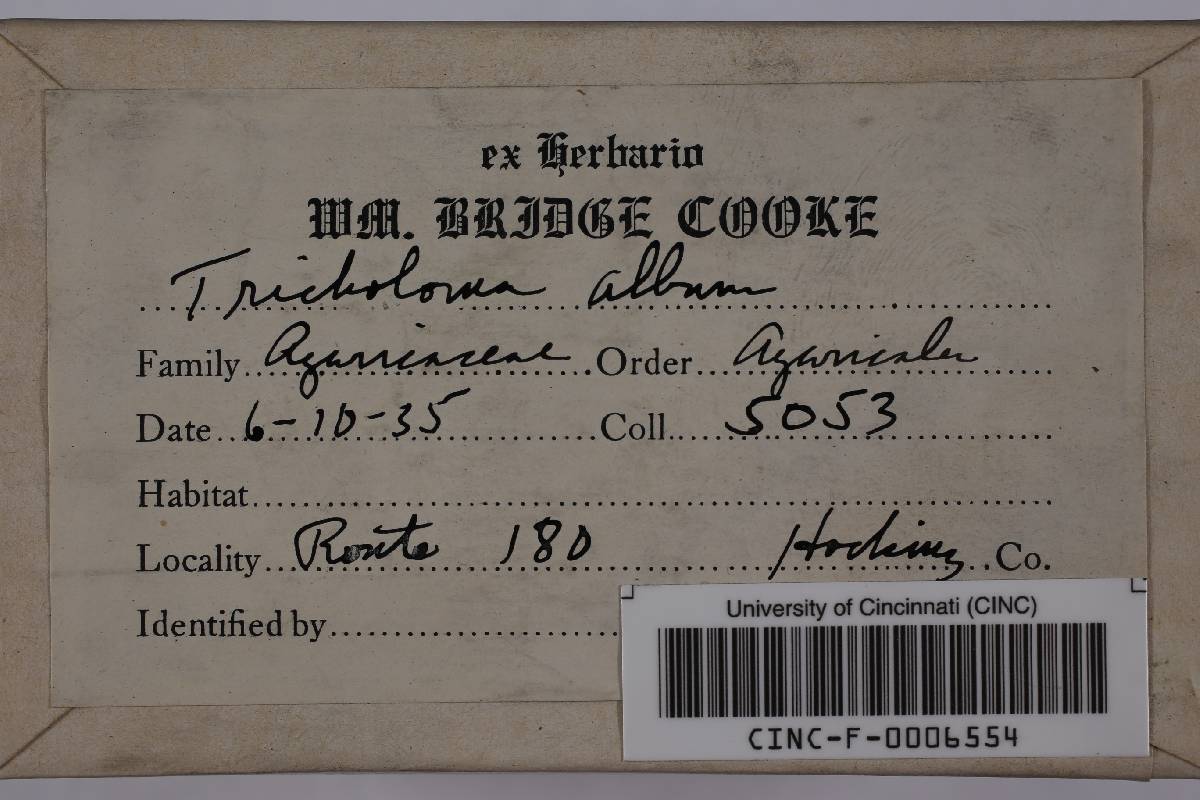 ex Herbario
WM. BRIDGE COOKE
Tricholoma album
Family Agaricaceae Order Agaricales
Date 6-10-35 Coll. 5053
Habitat
Locality Route 180 Hocking Co.
Identified by
University of Cincinnati (CINC)
CINC-F-0006554